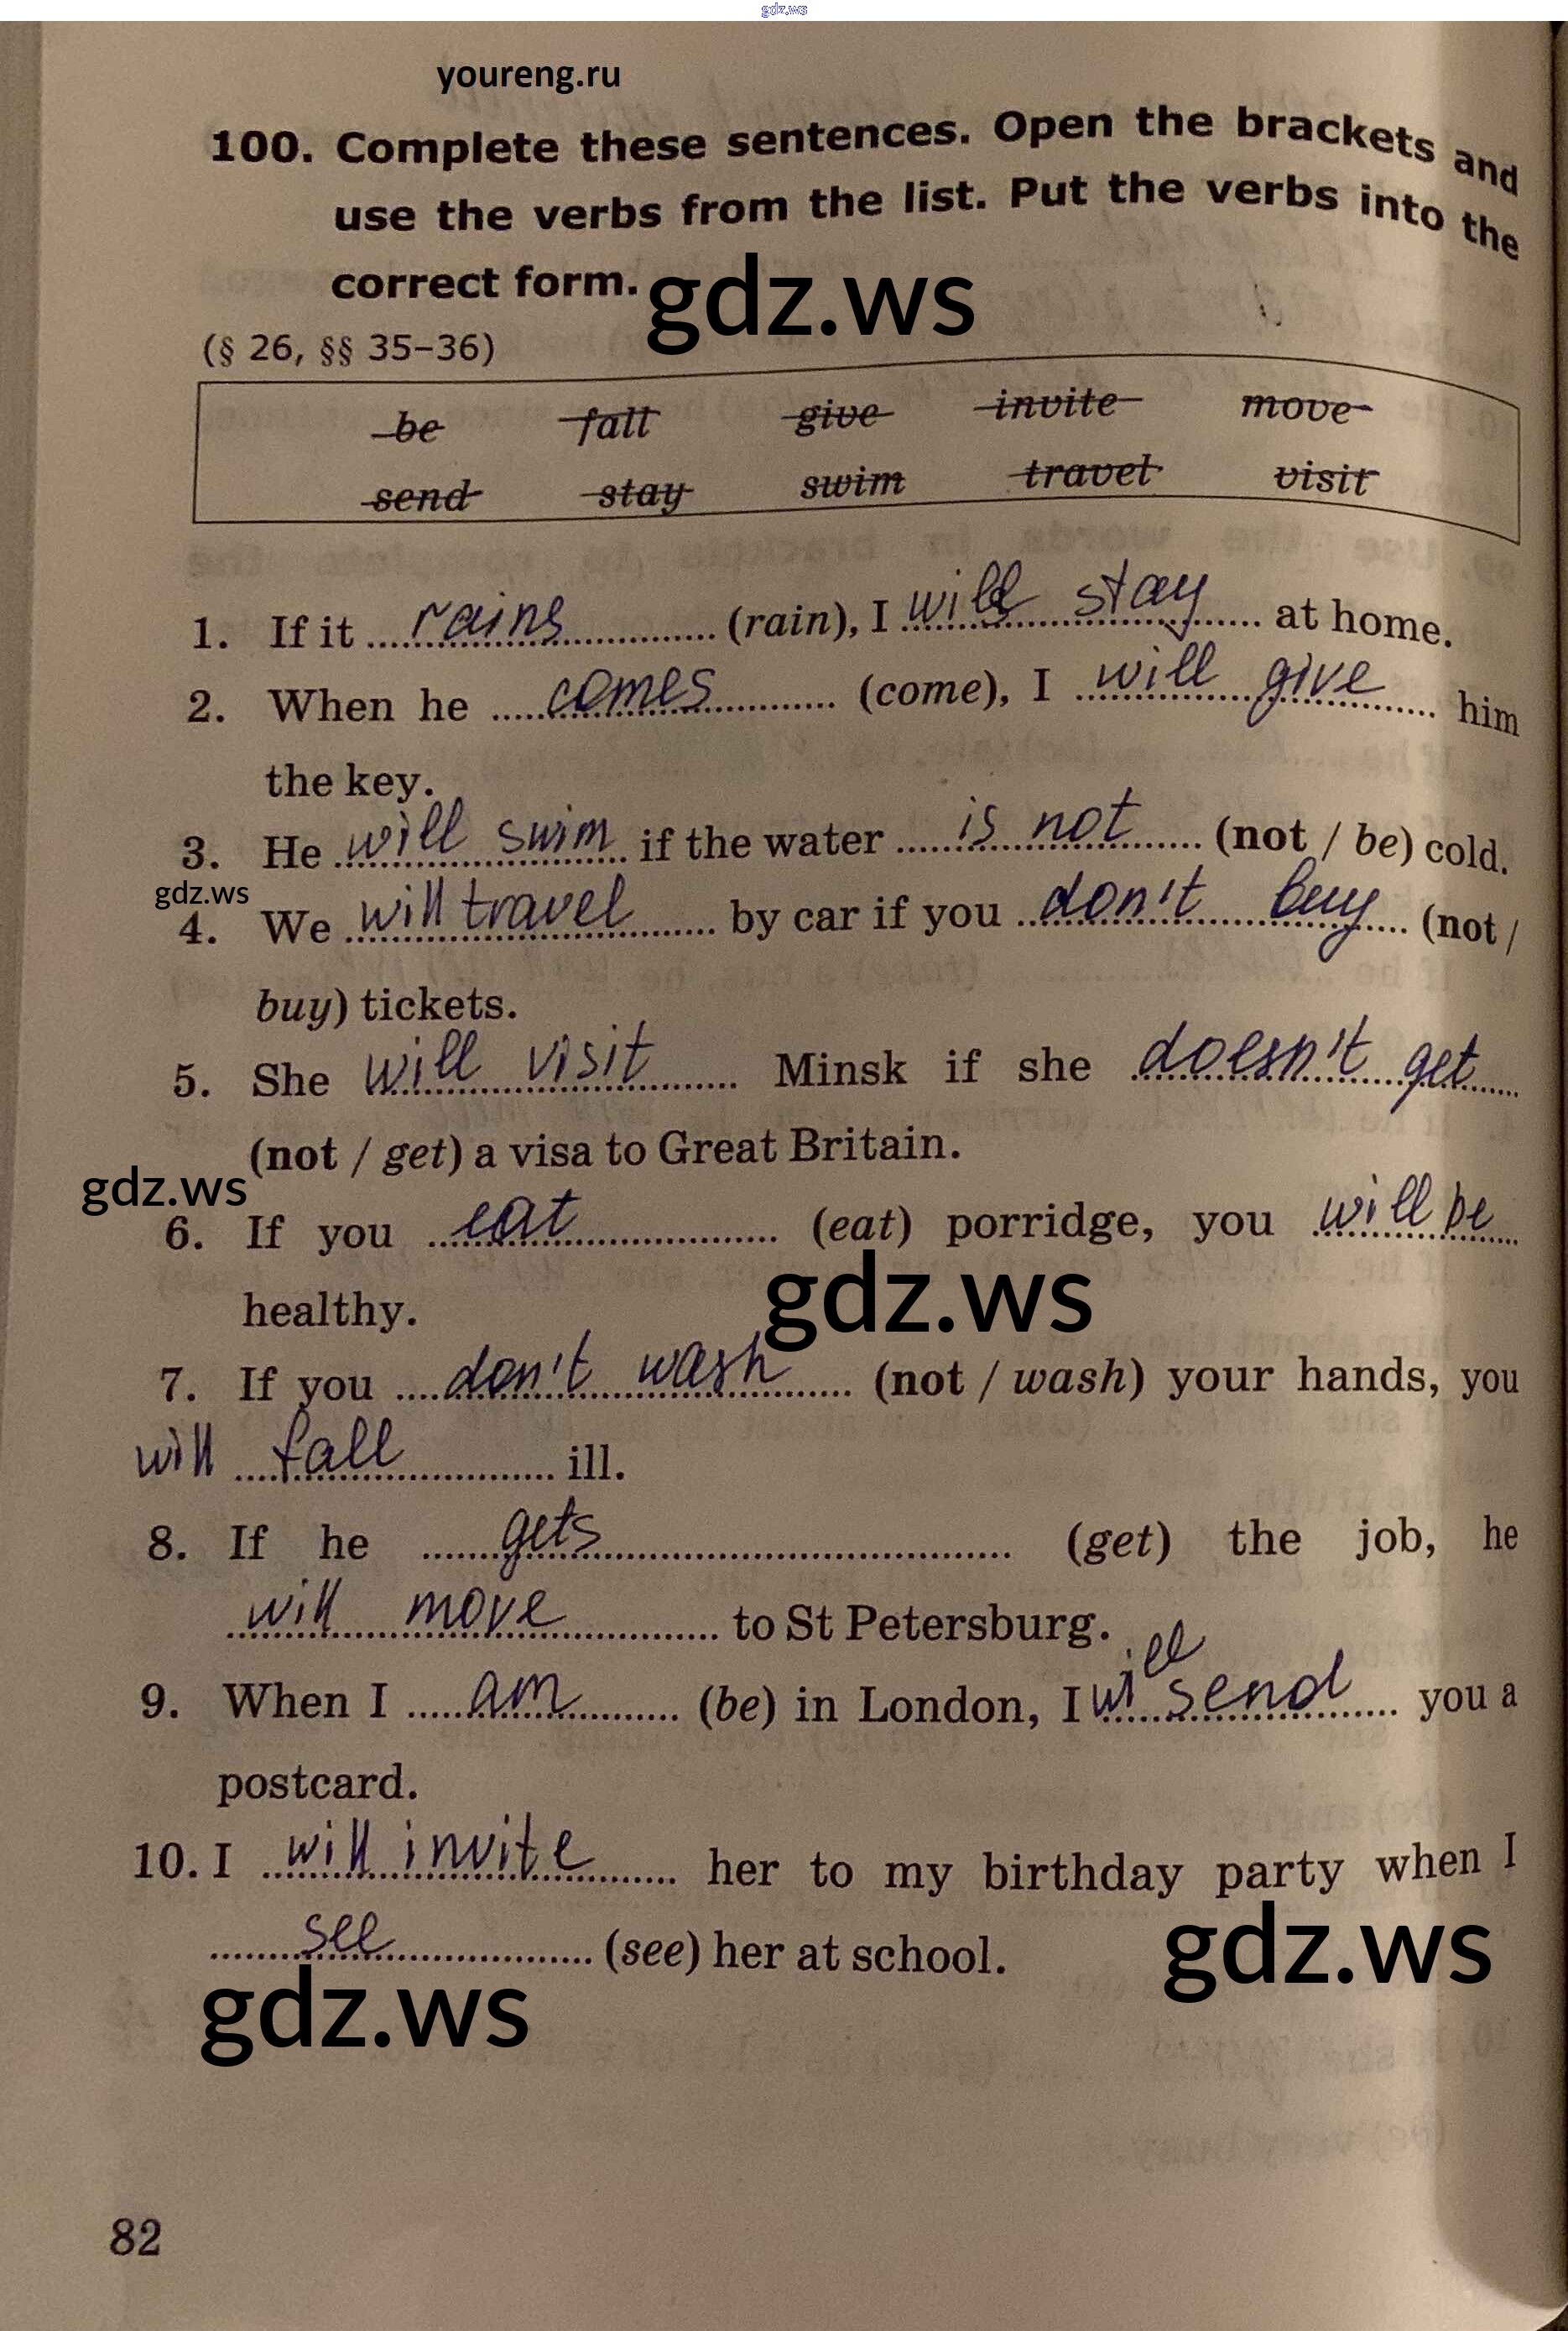 gdz.ws
youreng.ru
100. Complete these sentences. Open the brackets and
use the verbs from the list. Put the verbs into the
correct form.
gdz.ws
(§ 26, §§ 35–36)
be fall give invite move
send stay swim travel visit
1. If it rains (rain), I will stay at home.
2. When he comes (come), I will give him
the key.
3. He will swim if the water is not (not / be) cold.
gdz.ws
4. We will travel by car if you don't buy (not /
buy) tickets.
5. She will visit Minsk if she doesn't get
(not / get) a visa to Great Britain.
gdz.ws
6. If you eat (eat) porridge, you will be
healthy.
gdz.ws
7. If you don't wash (not / wash) your hands, you
will fall ill.
8. If he gets (get) the job, he
will move to St Petersburg.
9. When I am (be) in London, I will send you a
postcard.
10. I will invite her to my birthday party when I
see (see) her at school.
gdz.ws
gdz.ws
82